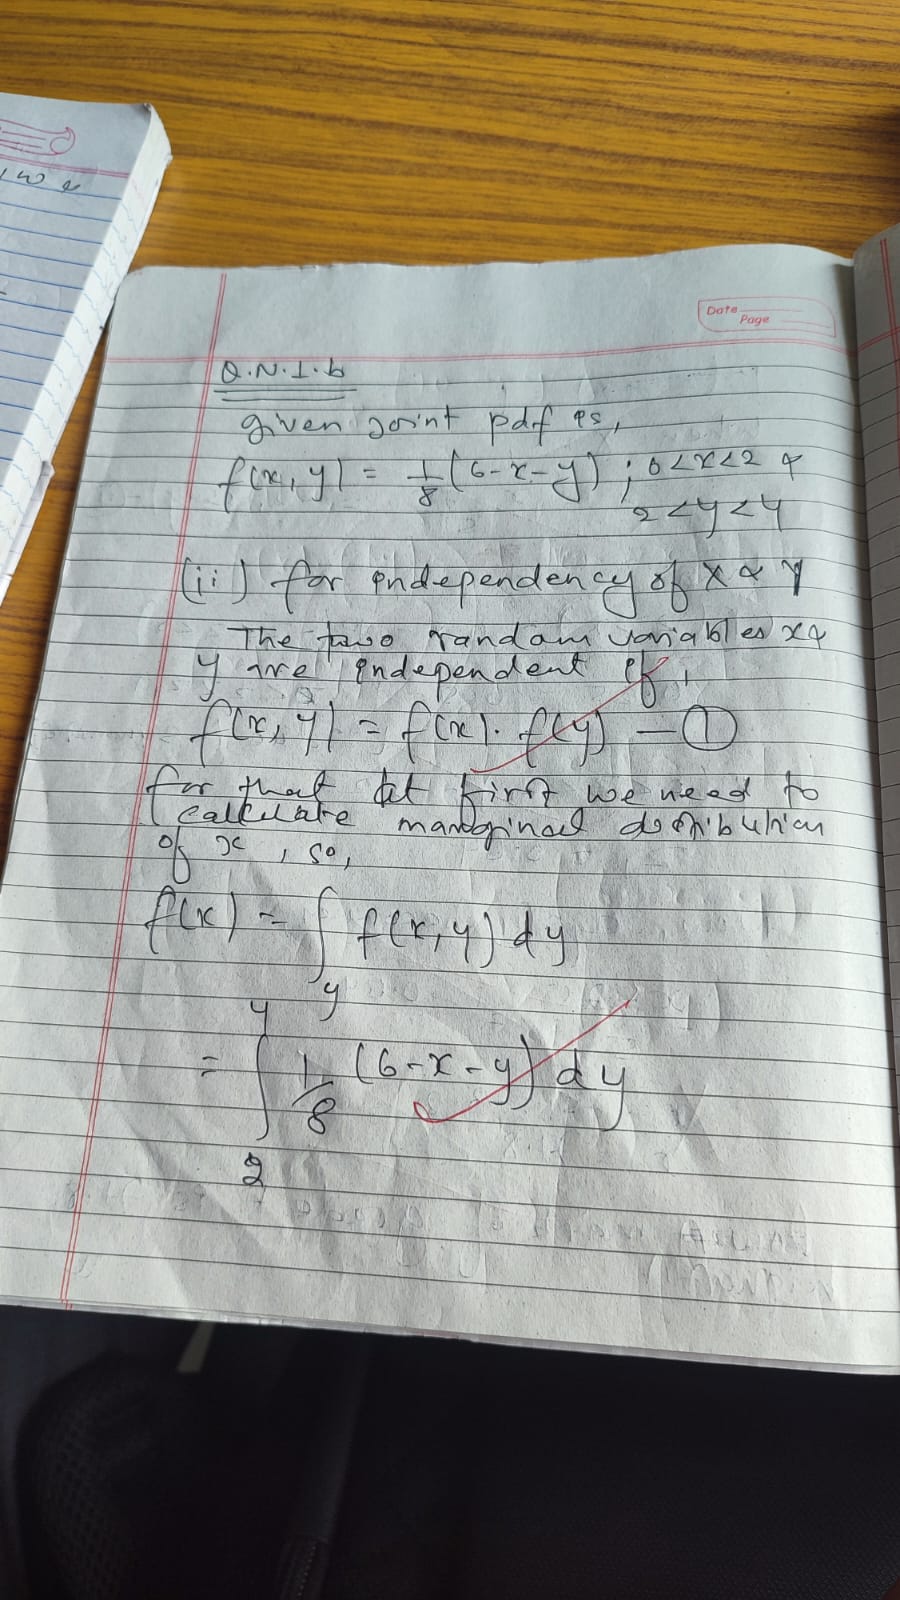 Date
Page
Q.N.1.b
given joint pdf is,
f(x, y) = 1/8 (6-x-y) ; 0<x<2 &
2<y<4
(ii) for independency of X & Y
The two random variables x &
y are independent if,
f(x, y) = f(x). f(y) — ①
for that at first we need to
calculate marginal distribution
of x, so,
f(x) = ∫y f(x, y) dy
= ∫₂⁴ 1/8 (6-x-y) dy